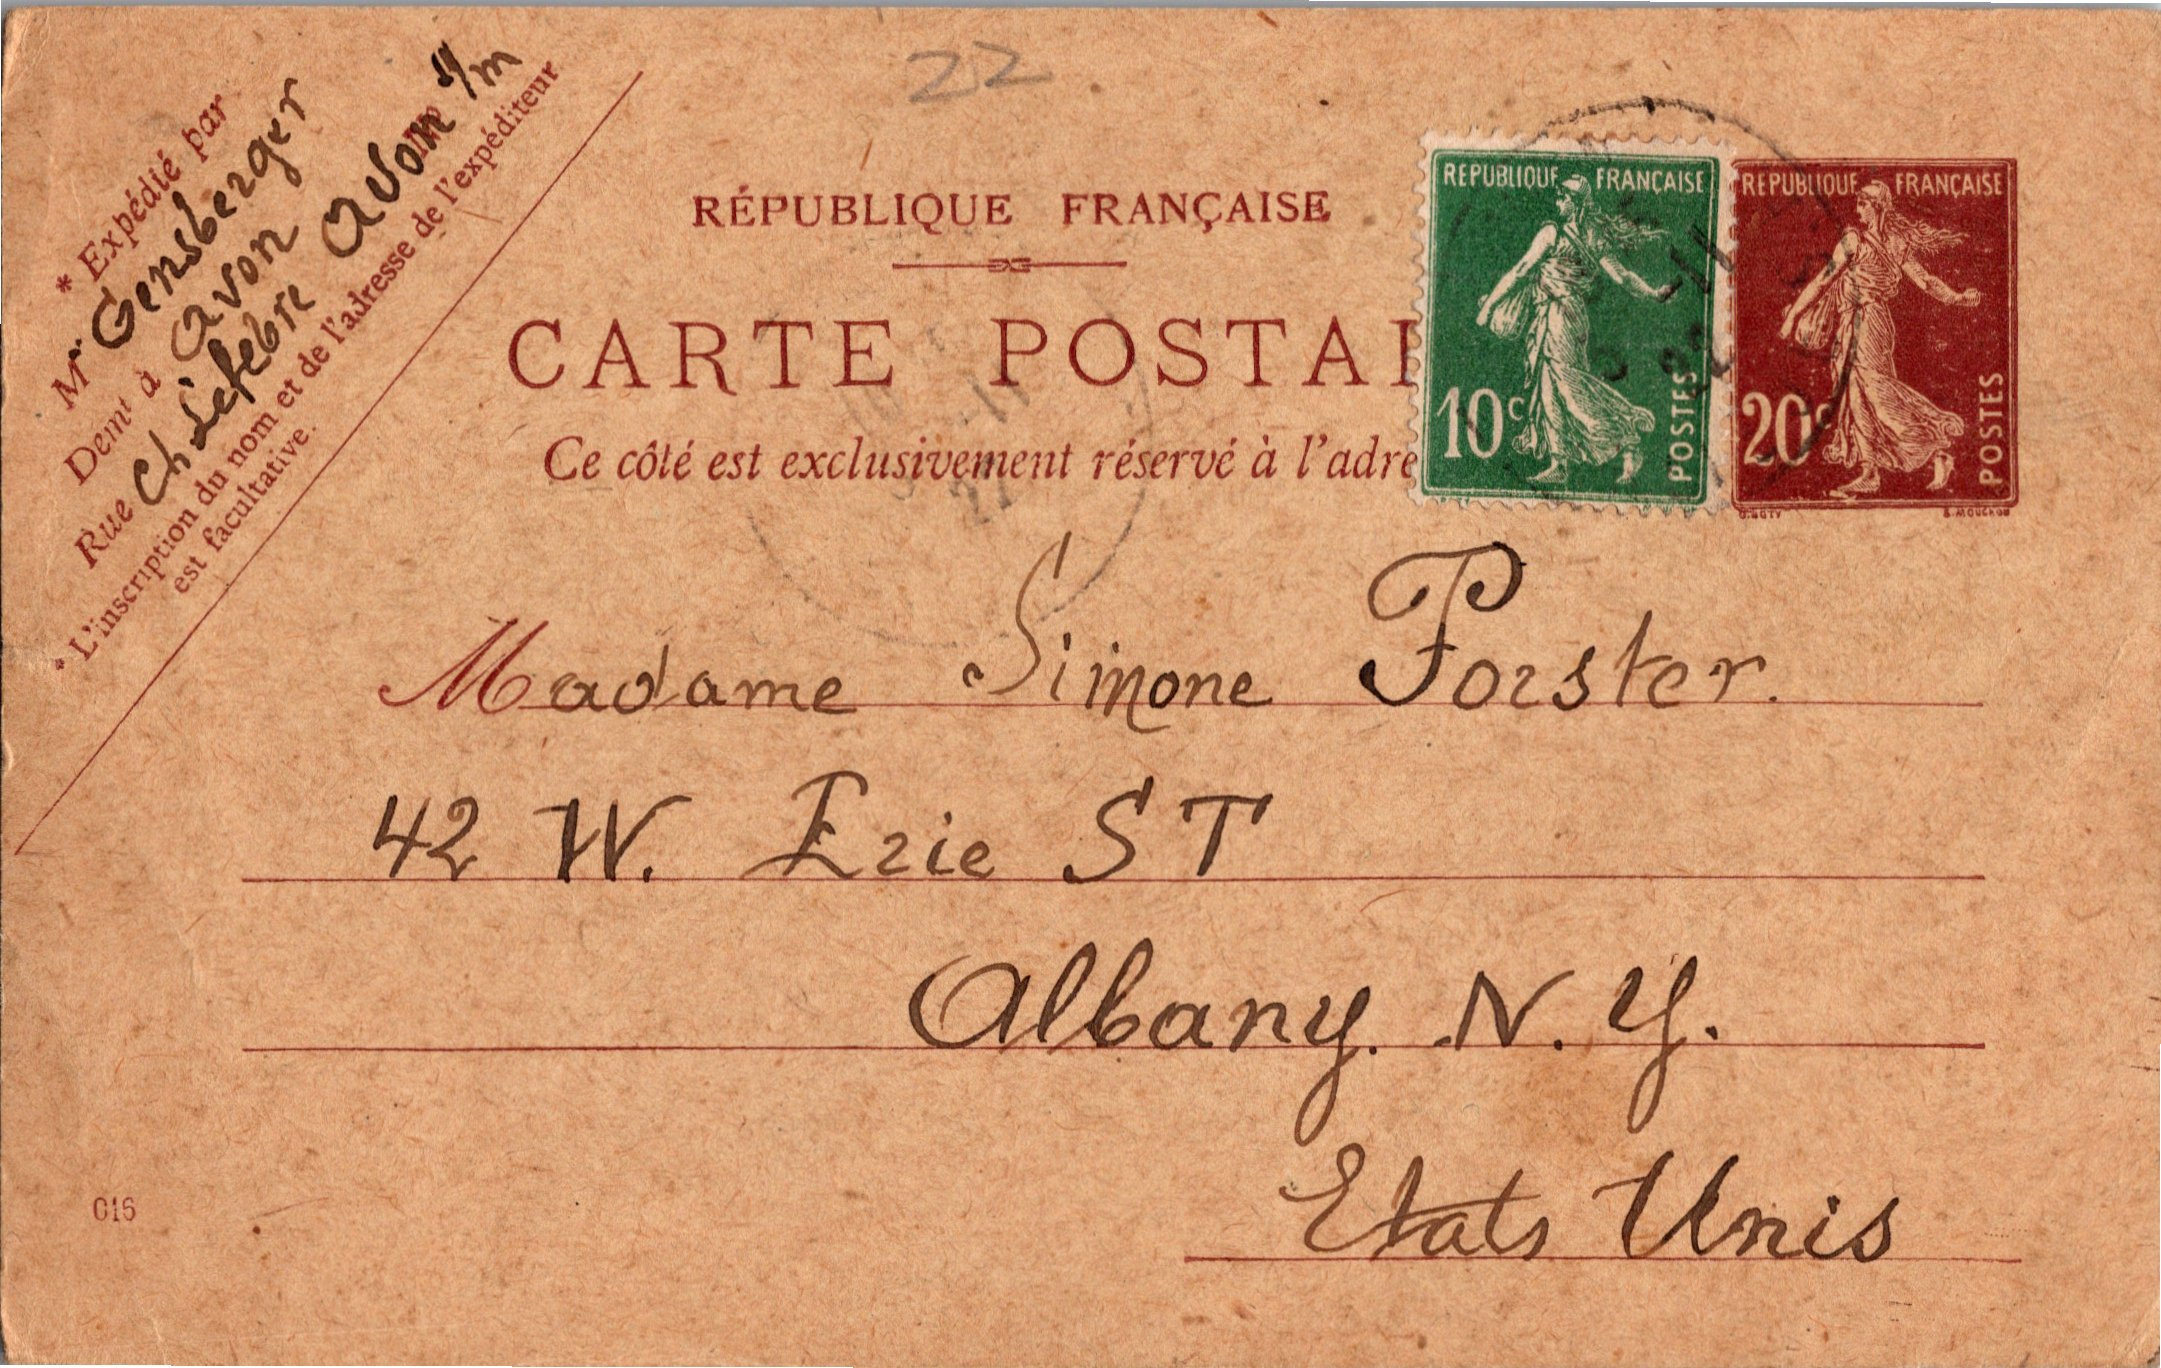 22
* Expédié par
Mr Gensberger
Demt à Avon
Rue Ch Lefebre Avon S/m
* L'inscription du nom et de l'adresse de l'expéditeur
est facultative.
RÉPUBLIQUE FRANÇAISE
CARTE POSTAL
Ce côté est exclusivement réservé à l'adre
REPUBLIQUE FRANÇAISE
10c POSTES
REPUBLIQUE FRANÇAISE
20c POSTES
O. ROTY E. MOUCHON
Madame Simone Forster.
42 W. Erie ST
Albany. N. Y.
Etats Unis
016